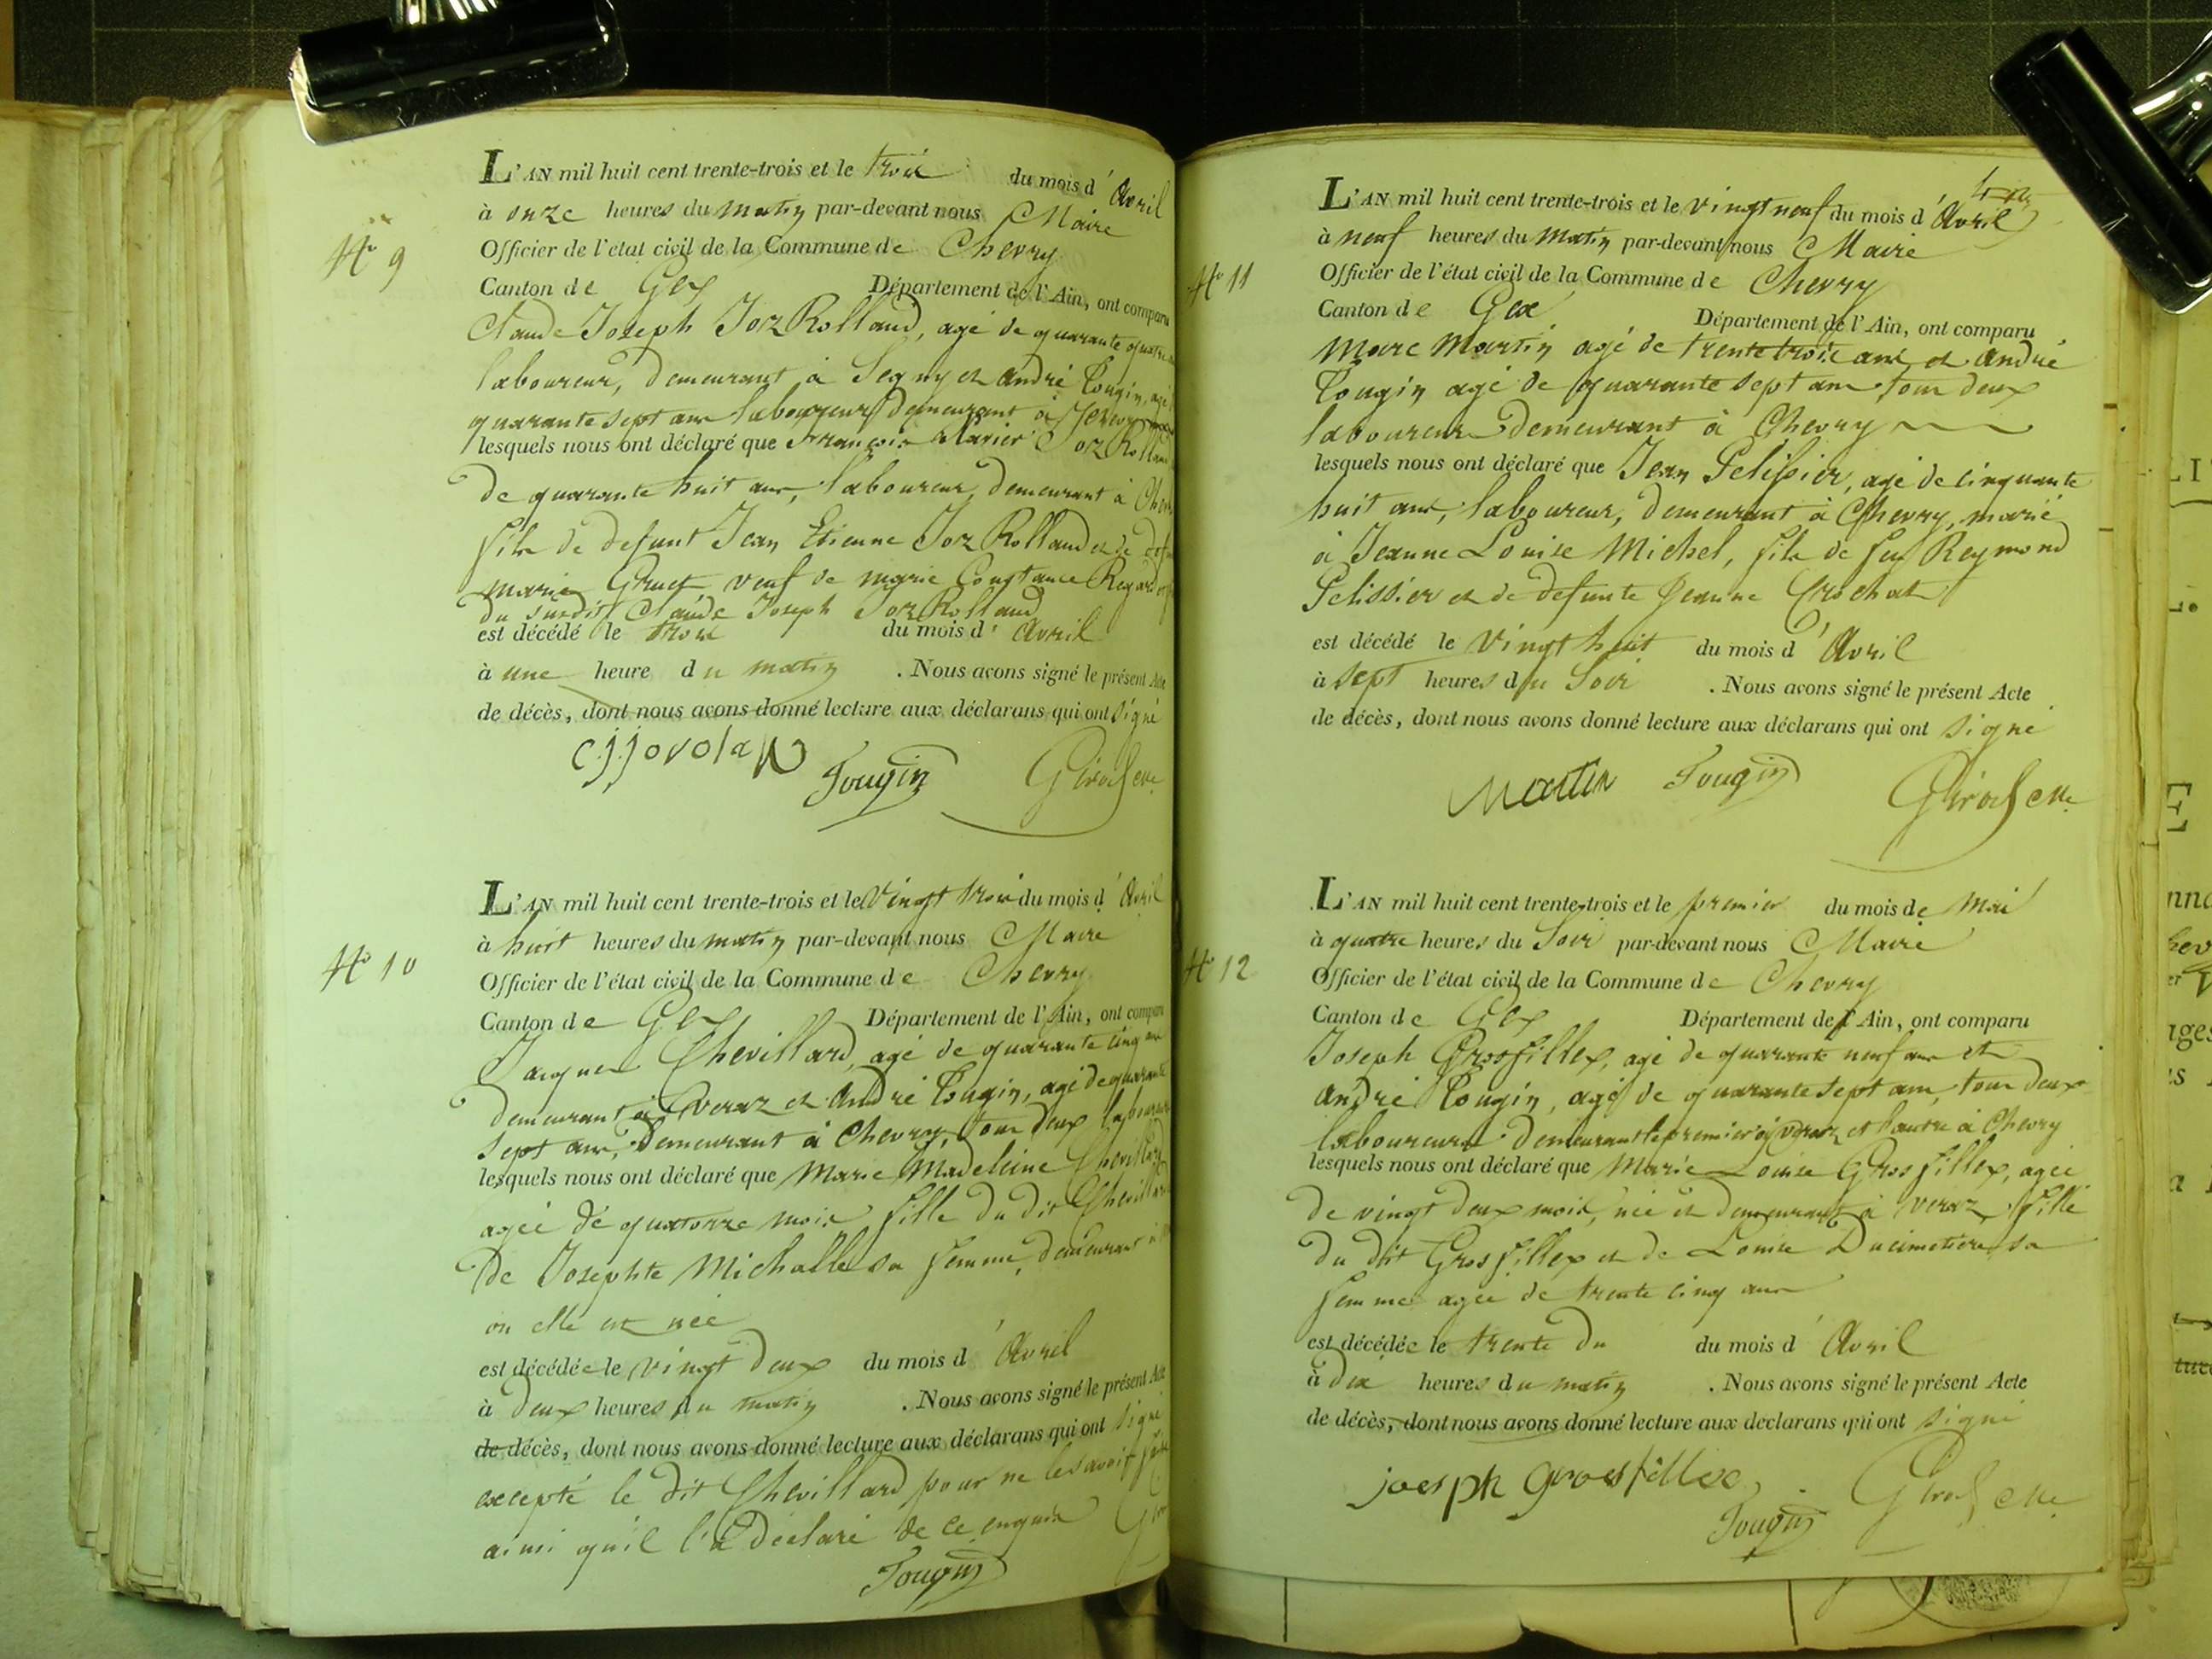 L'AN mil huit cent trente-trois et le trois du mois d'Avril
à onze heures du matin par-devant nous Maire
Nº 9
Officier de l'état civil de la Commune de Chevry
Canton de Gex Département de l'Ain, ont comparu
Claude Joseph Joz Rolland, agé de quarante quatre
laboureur, demeurant à Segny et André Tougin, agé
quarante sept ans laboureur demeurant à Chevry
lesquels nous ont déclaré que François Xavier Joz Rolland
de quarante huit ans, laboureur, demeurant à Chevry
fils de defunt Jean Etienne Joz Rolland et de
marie Gruet veuf de marie Constance Regard
du susdit Claude Joseph Joz Rolland
est décédé le trois du mois d'Avril
à une heure du matin . Nous avons signé le présent Acte
de décès, dont nous avons donné lecture aux déclarans qui ont signé
Tougin
L'AN mil huit cent trente-trois et le Vingt trois du mois d'Avril
à huit heures du matin par-devant nous Maire
Nº 10
Officier de l'état civil de la Commune de Chevry
Canton de Gex Département de l'Ain, ont comparu
Jacques Chevillard, agé de quarante cinq ans
demeurant à Veraz et André Tougin, agé de quarante
sept ans, demeurant à Chevry, tous deux laboureurs
lesquels nous ont déclaré que Marie Madeleine Chevillard
agée de quatorze mois fille du dit Chevillard
De Josephte Michalle sa femme, demeurant à
ou elle est née
est décédée le vingt deux du mois d'Avril
à deux heures du matin . Nous avons signé le présent Acte
de décès, dont nous avons donné lecture aux déclarans qui ont signé
excepté le dit Chevillard pour ne le savoir faire
ainsi qu'il l'a déclaré de ce enquis
Tougin
L'AN mil huit cent trente-trois et le vingt neuf du mois d'Avril
à neuf heures du matin par-devant nous Maire
Nº 11
Officier de l'état civil de la Commune de Chevry
Canton de Gex Département de l'Ain, ont comparu
Marc Martin agé de trente trois ans et André
Tougin agé de quarante sept ans tous deux
laboureurs demeurant à Chevry
lesquels nous ont déclaré que Jean Pelissier, agé de cinquante
huit ans, laboureur, demeurant à Chevry, marié
à Jeanne Louise Michel, fils de feu Reymond
Pelissier et de defunte Jeanne Crochat
est décédé le Vingt huit du mois d'Avril
à sept heures du Soir . Nous avons signé le présent Acte
de décès, dont nous avons donné lecture aux déclarans qui ont signé
Martin Tougin
L'AN mil huit cent trente-trois et le premier du mois de Mai
à quatre heures du Soir par-devant nous Maire
Nº 12
Officier de l'état civil de la Commune de Chevry
Canton de Gex Département de l'Ain, ont comparu
Joseph Grosfillex, agé de quarante neuf ans et
André Tougin, agé de quarante sept ans, tous deux
laboureurs demeurant le premier à Veraz et l'autre à Chevry
lesquels nous ont déclaré que Marie Louise Grosfillex, agée
de vingt deux mois, née et demeurant à Veraz, fille
du dit Grosfillex et de Louise Ducimetiere sa
femme agée de trente cinq ans
est décédée le trente du du mois d'Avril
à dix heures du matin . Nous avons signé le présent Acte
de décès, dont nous avons donné lecture aux déclarans qui ont signé
joesph grosfillex
Tougin